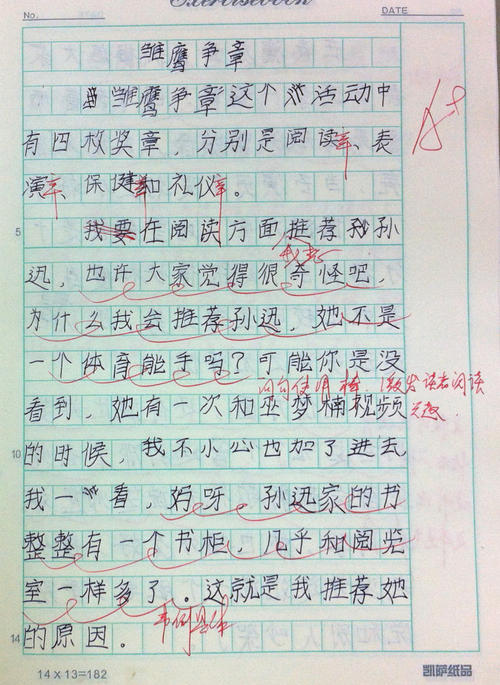 No.
Exercisebook
DATE
雏鹰争章
雏鹰争章这个活动中
有四枚奖章，分别是阅读章、表
演章、保健章和礼仪章。
5
我要在阅读方面推荐孙
迅，也许大家觉得很奇怪吧，
为什么我会推荐孙迅，她不是
一个体育能手吗？可能你是没
看到，她有一次和巫梦楠视频
10
的时候，我不小心也加了进去
我一看，妈呀 孙迅家的书
整整有一个书柜，几乎和阅览
室一样多了。这就是我推荐她
14
的原因。
A+
14×13=182
凯萨纸品